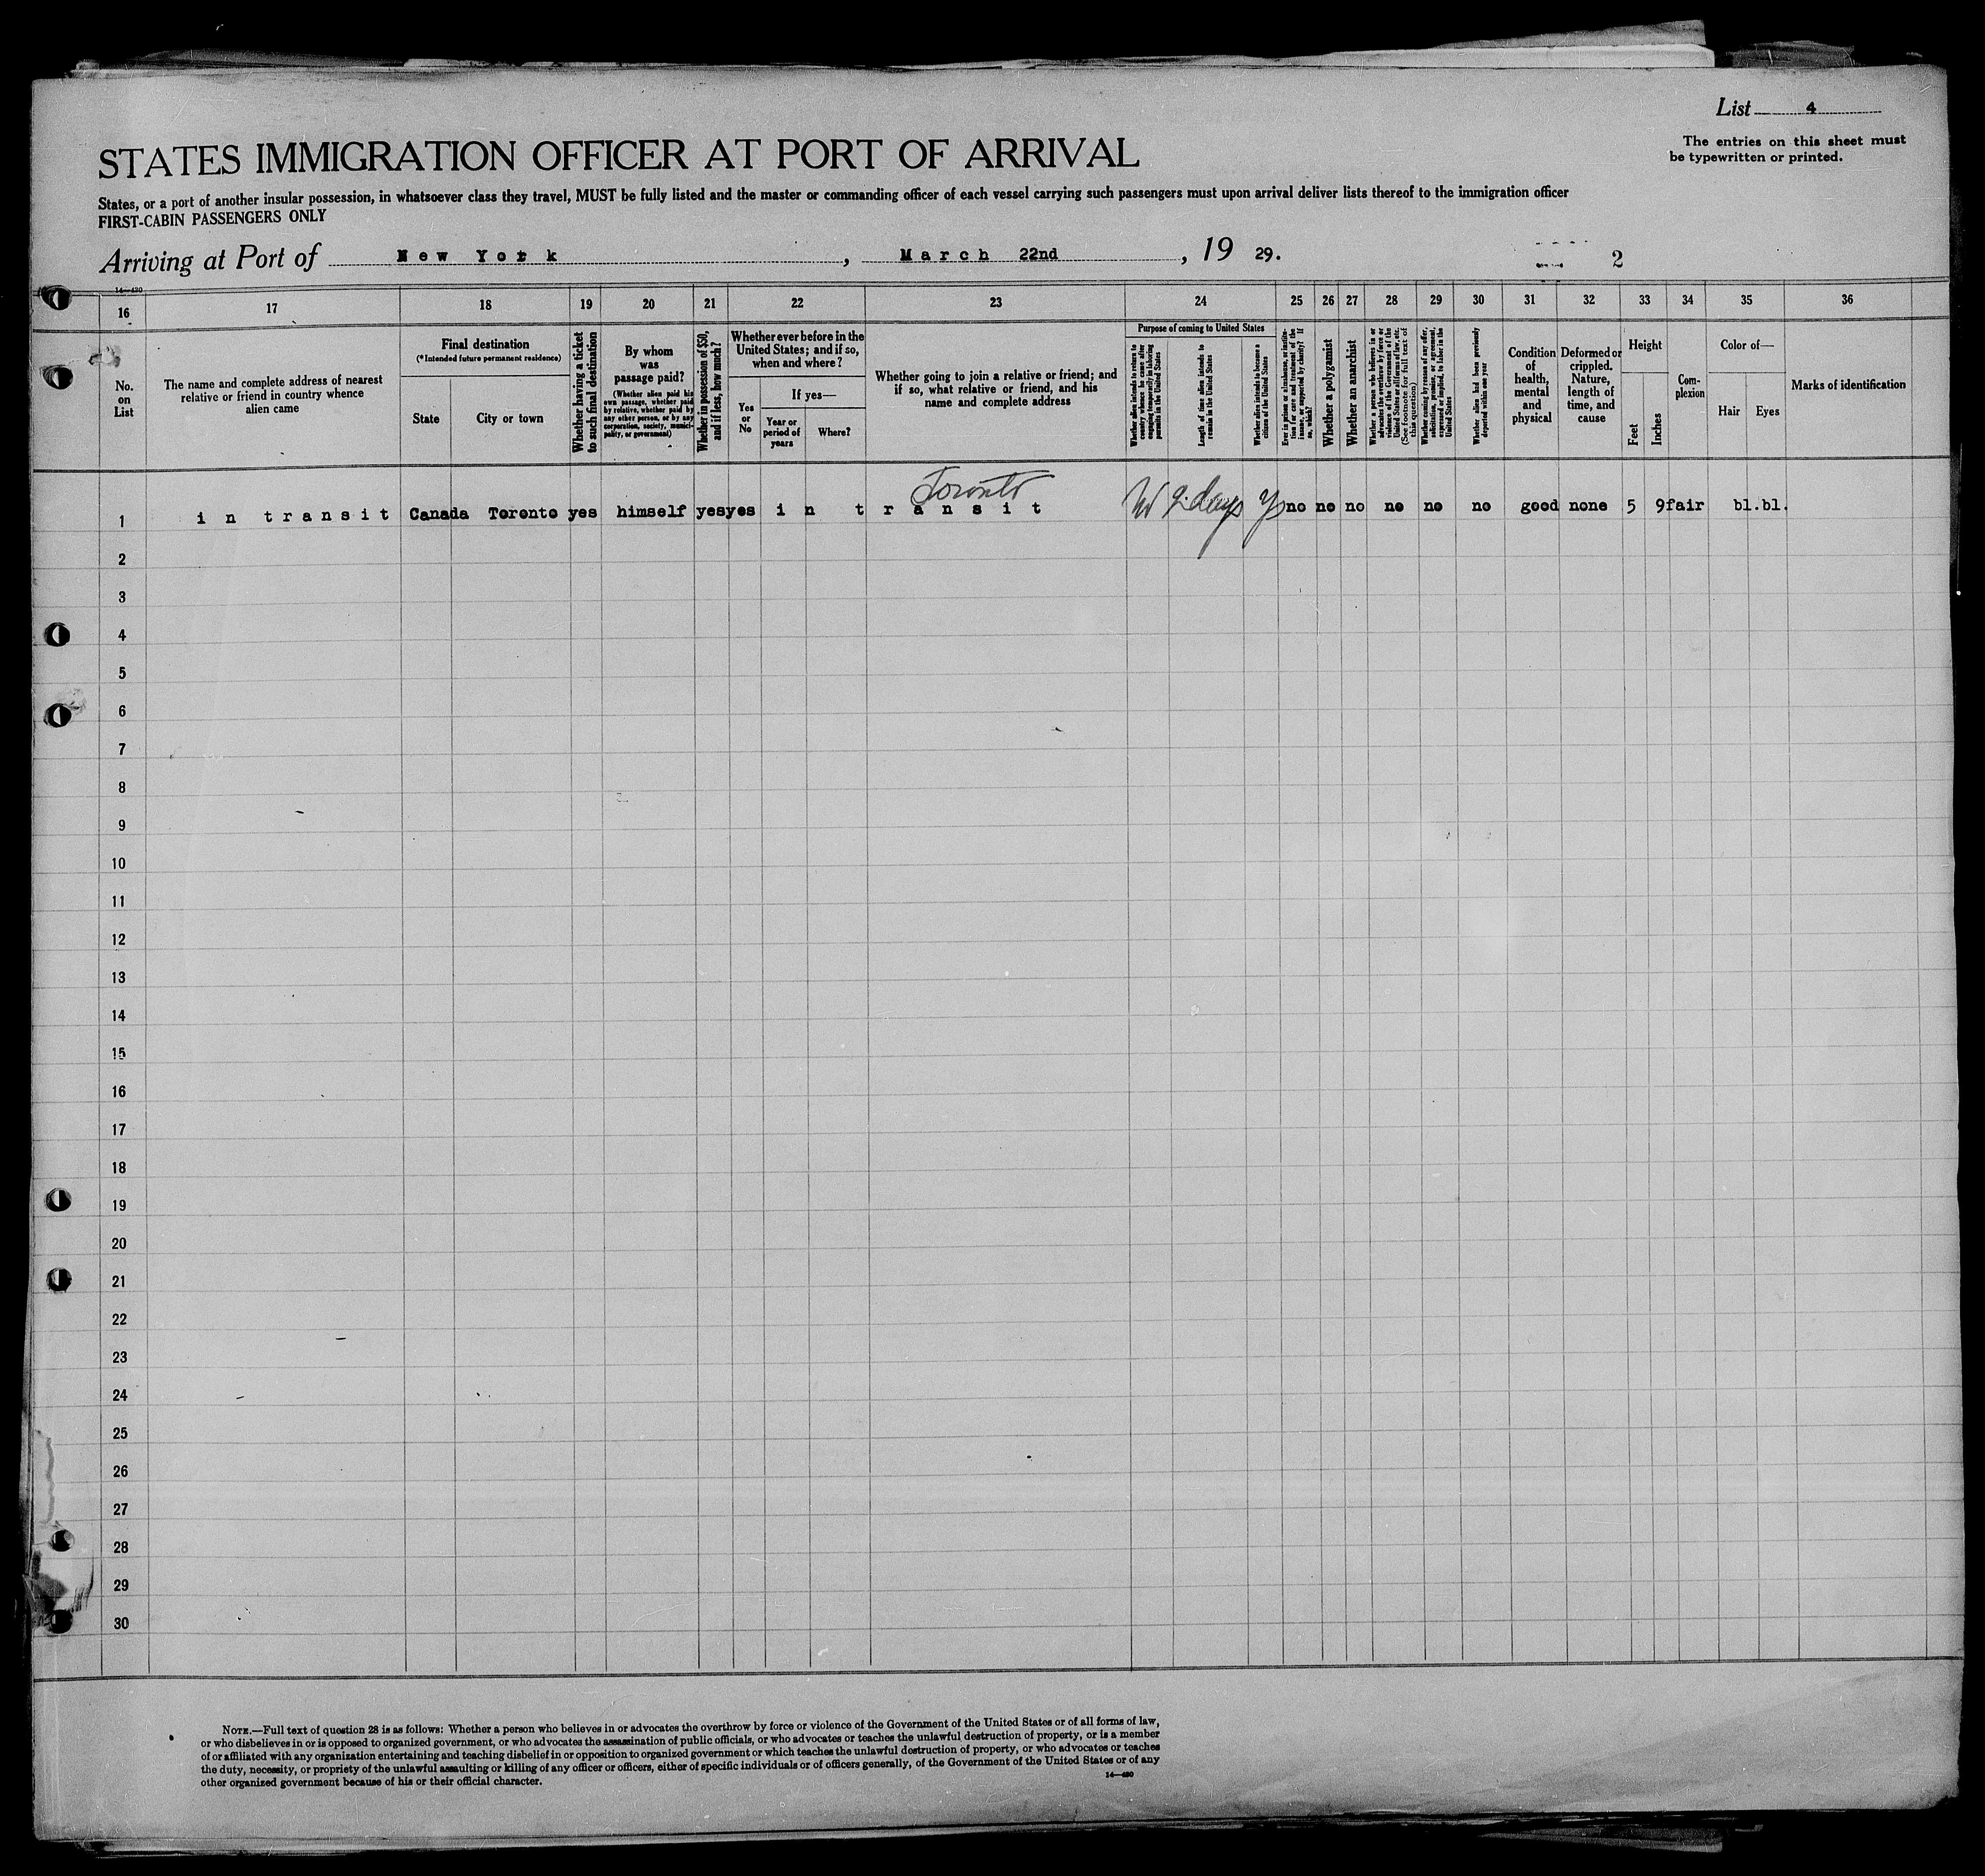 List 4
The entries on this sheet must
be typewritten or printed.
STATES IMMIGRATION OFFICER AT PORT OF ARRIVAL
States, or a port of another insular possession, in whatsoever class they travel, MUST be fully listed and the master or commanding officer of each vessel carrying such passengers must upon arrival deliver lists thereof to the immigration officer
FIRST-CABIN PASSENGERS ONLY
Arriving at Port of New York, March 22nd, 19 29.
2
14—430
16 17 18 19 20 21 22 23 24 25 26 27 28 29 30 31 32 33 34 35 36
No.
on
List
The name and complete address of nearest
relative or friend in country whence
alien came
Final destination
(*Intended future permanent residence)
State
City or town
Whether having a ticket
to such final destination
By whom
was
passage paid?
(Whether alien paid his
own passage, whether paid
by relative, whether paid by
any other person, or by any
corporation, society, munici-
pality, or government)
Whether in possession of $50,
and if less, how much?
Whether ever before in the
United States; and if so,
when and where?
Yes
or
No
If yes—
Year or
period of
years
Where?
Whether going to join a relative or friend; and
if so, what relative or friend, and his
name and complete address
Purpose of coming to United States
Whether alien intends to return to
country whence he came after
engaging temporarily in laboring
pursuits in the United States
Length of time alien intends to
remain in the United States
Whether alien intends to become a
citizen of the United States
Ever in prison or almshouse, or institu-
tion for care and treatment of the
insane, or supported by charity? If
so, which?
Whether a polygamist
Whether an anarchist
Whether a person who believes in or
advocates the overthrow by force or
violence of the Government of the
United States or all forms of law, etc.
(See footnote for full text of
this question)
Whether coming by reason of any offer,
solicitation, promise, or agreement,
expressed or implied, to labor in the
United States
Whether alien had been previously
deported within one year
Condition
of
health,
mental
and
physical
Deformed or
crippled.
Nature,
length of
time, and
cause
Height
Feet
Inches
Com-
plexion
Color of—
Hair
Eyes
Marks of identification
Toronto
1 in transit Canada Toronto yes himself yes yes in transit 2 days no no no no no no good none 5 9 fair bl. bl.
2
3
4
5
6
7
8
9
10
11
12
13
14
15
16
17
18
19
20
21
22
23
24
25
26
27
28
29
30
NOTE.—Full text of question 28 is as follows: Whether a person who believes in or advocates the overthrow by force or violence of the Government of the United States or of all forms of law,
or who disbelieves in or is opposed to organized government, or who advocates the assassination of public officials, or who advocates or teaches the unlawful destruction of property, or is a member
of or affiliated with any organization entertaining and teaching disbelief in or opposition to organized government or which teaches the unlawful destruction of property, or who advocates or teaches
the duty, necessity, or propriety of the unlawful assaulting or killing of any officer or officers, either of specific individuals or of officers generally, of the Government of the United States or of any
other organized government because of his or their official character.
14—430